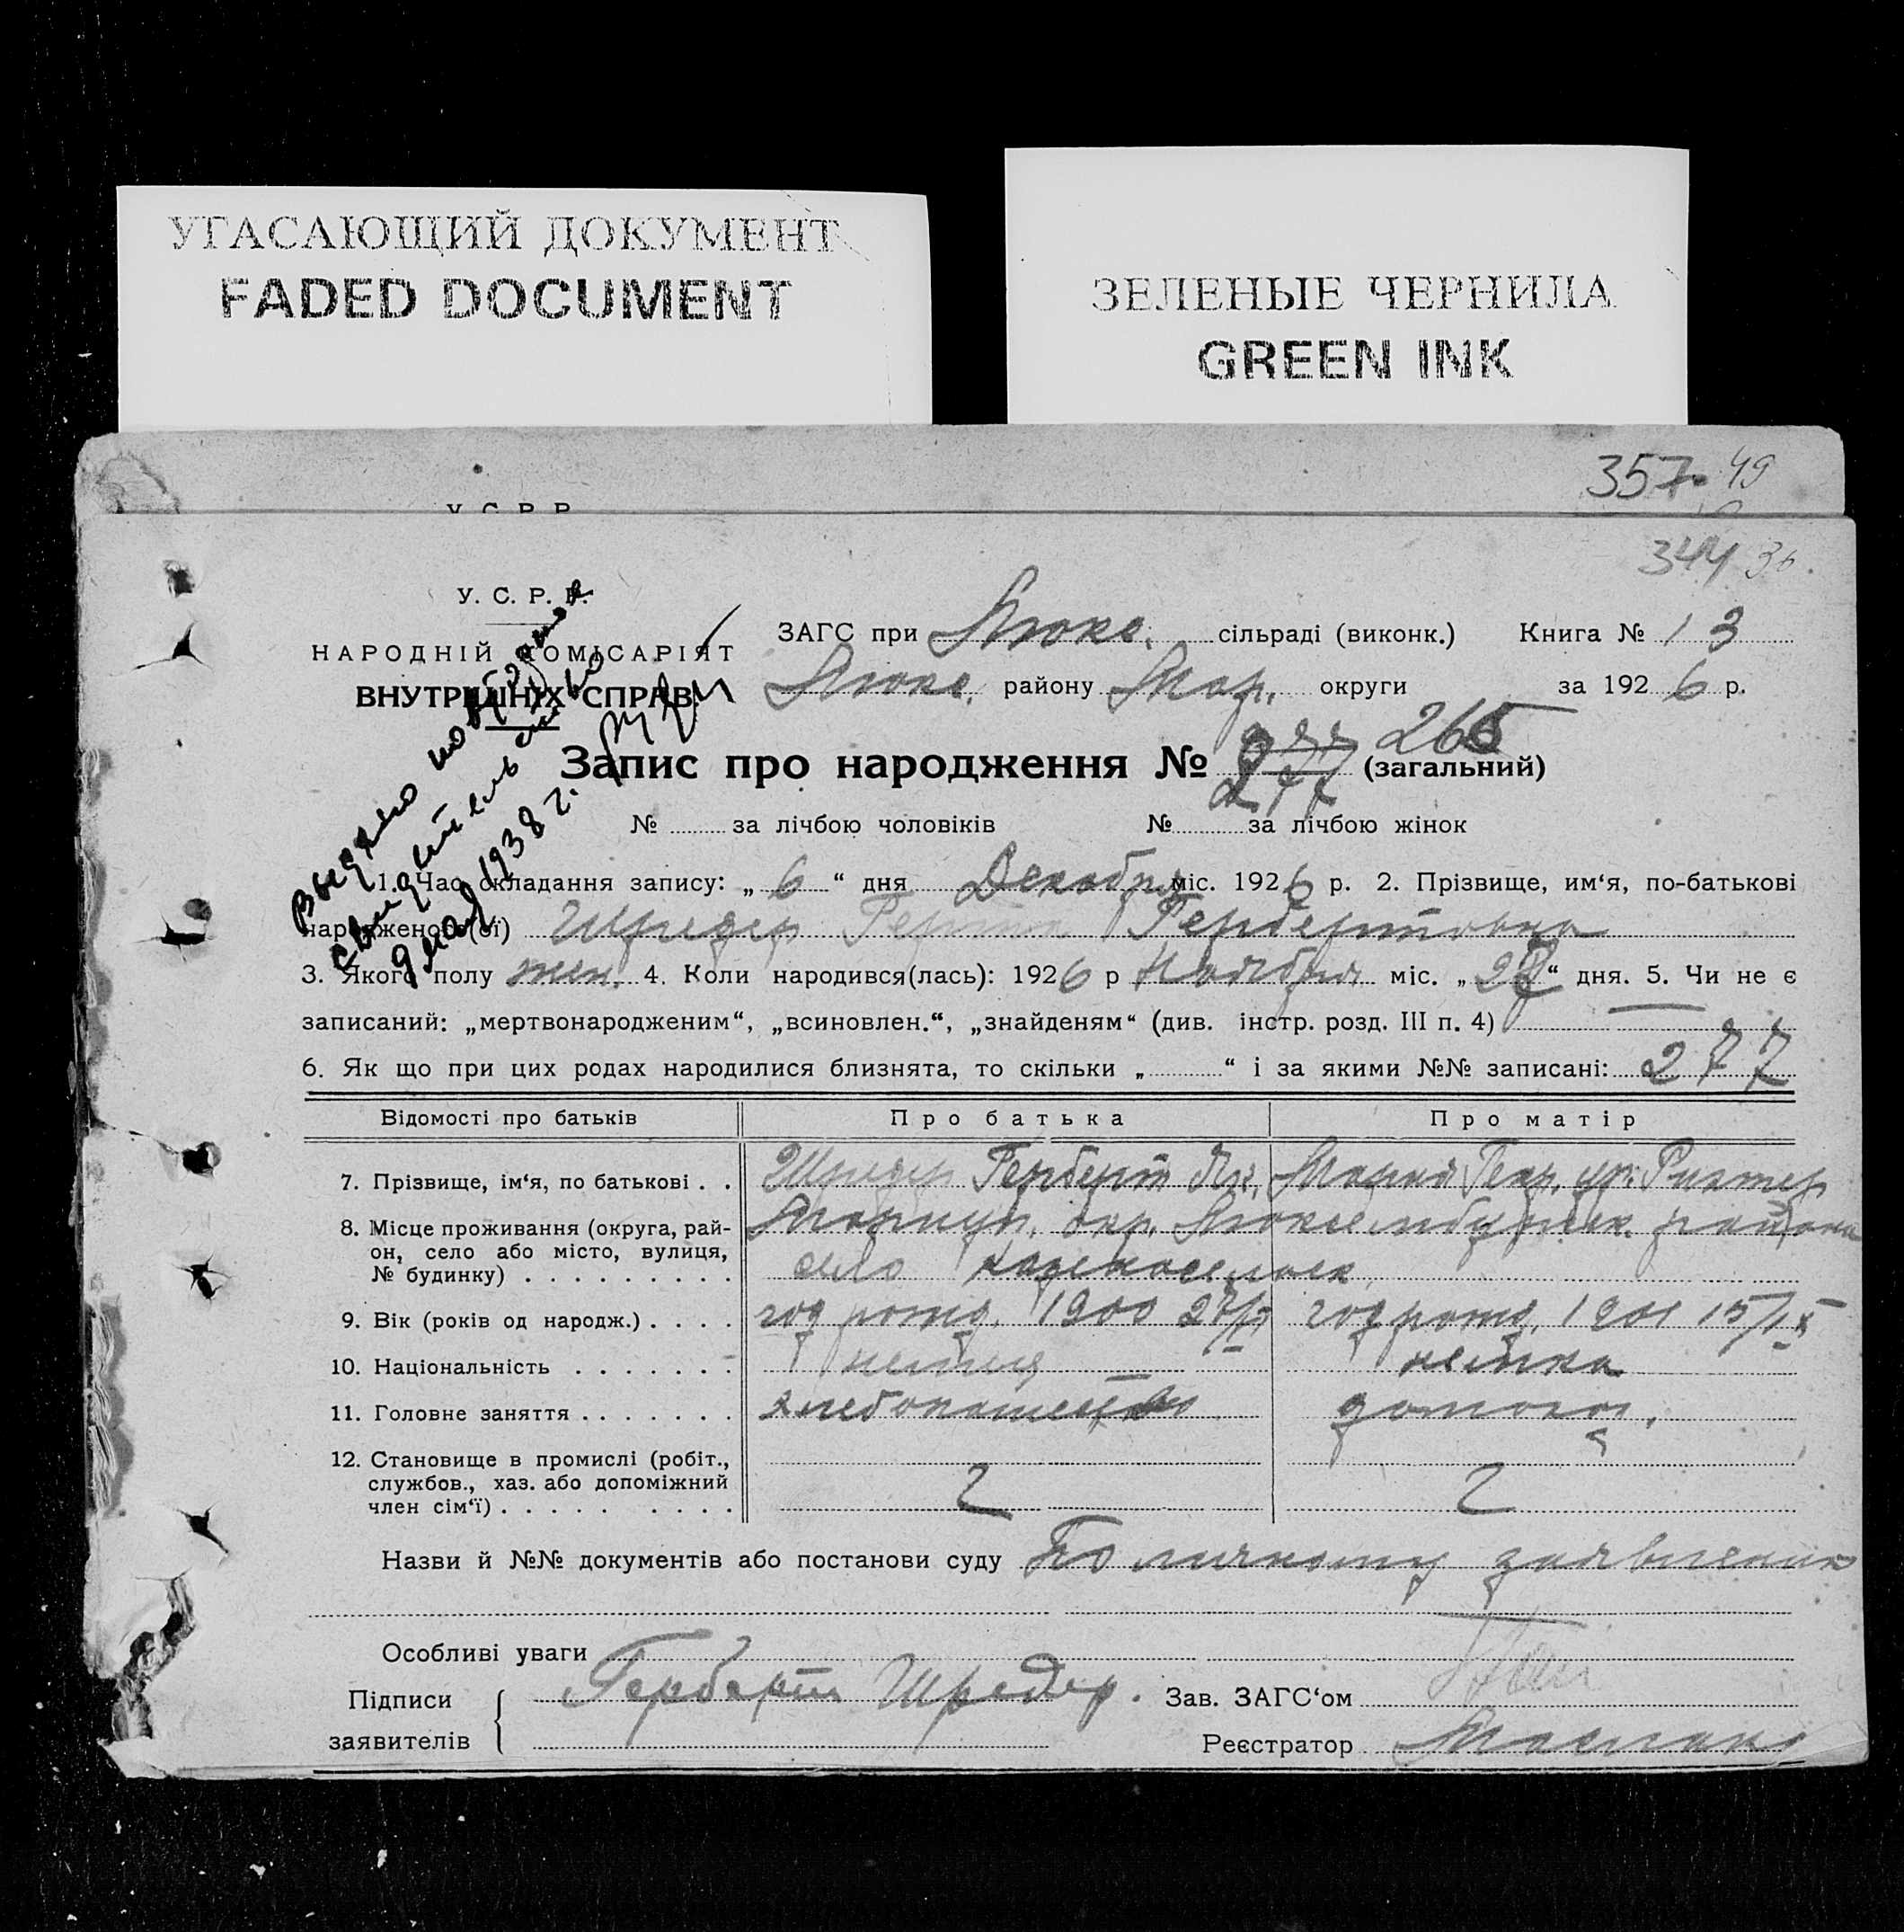 УГАСАЮЩИЙ ДОКУМЕНТ
FADED DOCUMENT
ЗЕЛЕНЫЕ ЧЕРНИЛА
GREEN INK
357 49
У. С. Р. Р.
344 36.
У. С. Р. Р.
НАРОДНІЙ КОМІСАРІЯТ
ВНУТРІШНІХ СПРАВ
Выдано повторное
свидетельство
1938 г.
ЗАГС при Люкс. сільраді (виконк.) Книга № 13
Люкс. району Мар. округи за 1926 р.
Запис про народження № 277 265 (загальний)
277
№ за лічбою чоловіків № за лічбою жінок
1. Час складання запису: „6“ дня Декабря міс. 1926 р. 2. Прізвище, им‘я, по-батькові
народженого(ої) Шредер Герта Гербертовна
3. Якого полу жен. 4. Коли народився(лась): 1926 р Ноября міс. „ “ дня. 5. Чи не є
записаний: „мертвонародженим“, „всиновлен.“, „знайденям“ (див. інстр. розд. III п. 4) —
6. Як що при цих родах народилися близнята, то скільки „ “ і за якими №№ записані: 277
Відомості про батьків Про батька Про матір
7. Прізвище, ім‘я, по батькові . . Шредер Герберт Мария ур. Рихтер
8. Місце проживання (округа, рай- Мариуп. окр. Люксембургск. района
он, село або місто, вулиця, село
№ будинку) . . . . . . . . .
9. Вік (років од народж.) . . . . год рожд. 1900 год рожд. 1901 15/IX
10. Національність . . . . . . . немец немка
11. Головне заняття . . . . . . . хлебопашество домохоз.
12. Становище в промислі (робіт.,
службов., хаз. або допоміжний 2 2
член сім‘ї) . . . . . . . . .
Назви й №№ документів або постанови суду По личному заявлению
Особливі уваги
Підписи Герберт Шредер. Зав. ЗАГС‘ом
заявителів Реєстратор